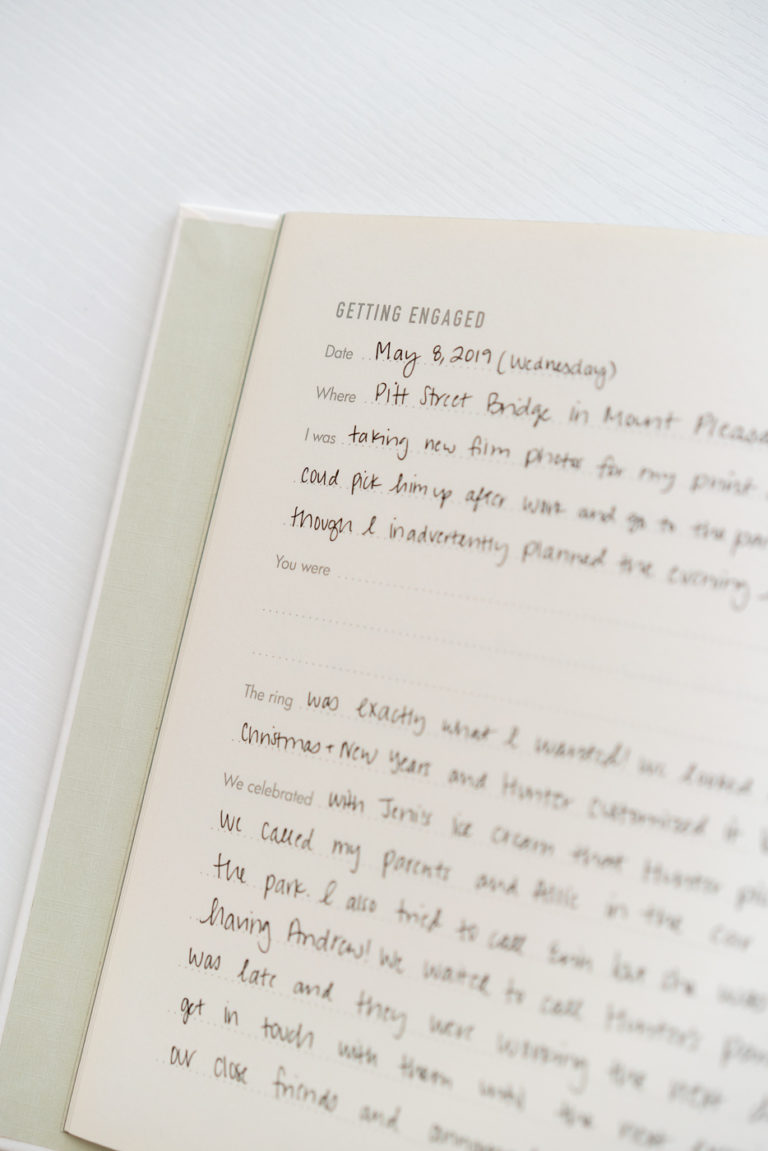 GETTING ENGAGED
Date May 8, 2019 (Wednesday)
Where Pitt Street Bridge in Mount Pleasa
I was taking new film photos for my print
could pick him up after work and go to the par
though I inadvertently planned the evening
You were
The ring was exactly what I wanted! We looked
Christmas + New Years and Hunter customized it
We celebrated with Jeni's ice cream that Hunter pi
We called my parents and Allie in the car
the park. I also tried to call Erin but she was
having Andrew! We waited to call Hunter's par
was late and they were working the next
get in touch with them until the next
our close friends and announ